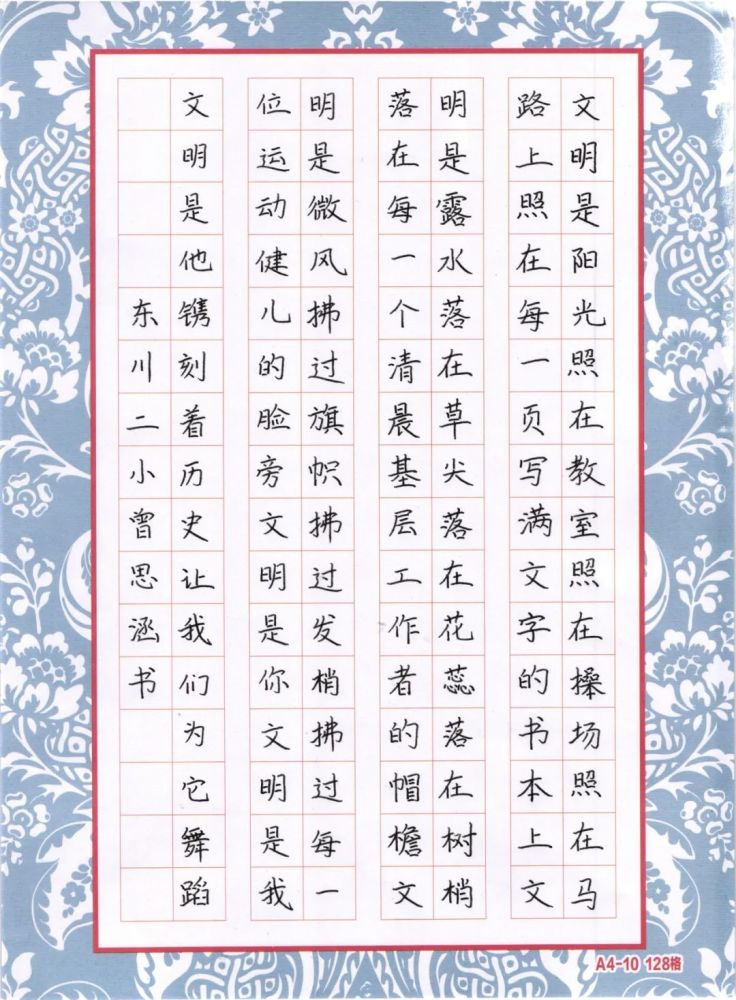 文明是阳光照在教室照在操场照在马
路上照在每一页写满文字的书本上文
明是露水落在草尖落在花蕊落在树梢
落在每一个清晨基层工作者的帽檐文
明是微风拂过旗帜拂过发梢拂过每一
位运动健儿的脸旁文明是你文明是我
文明是他镌刻着历史让我们为它舞蹈
东川二小曾思涵书
A4-10 128格